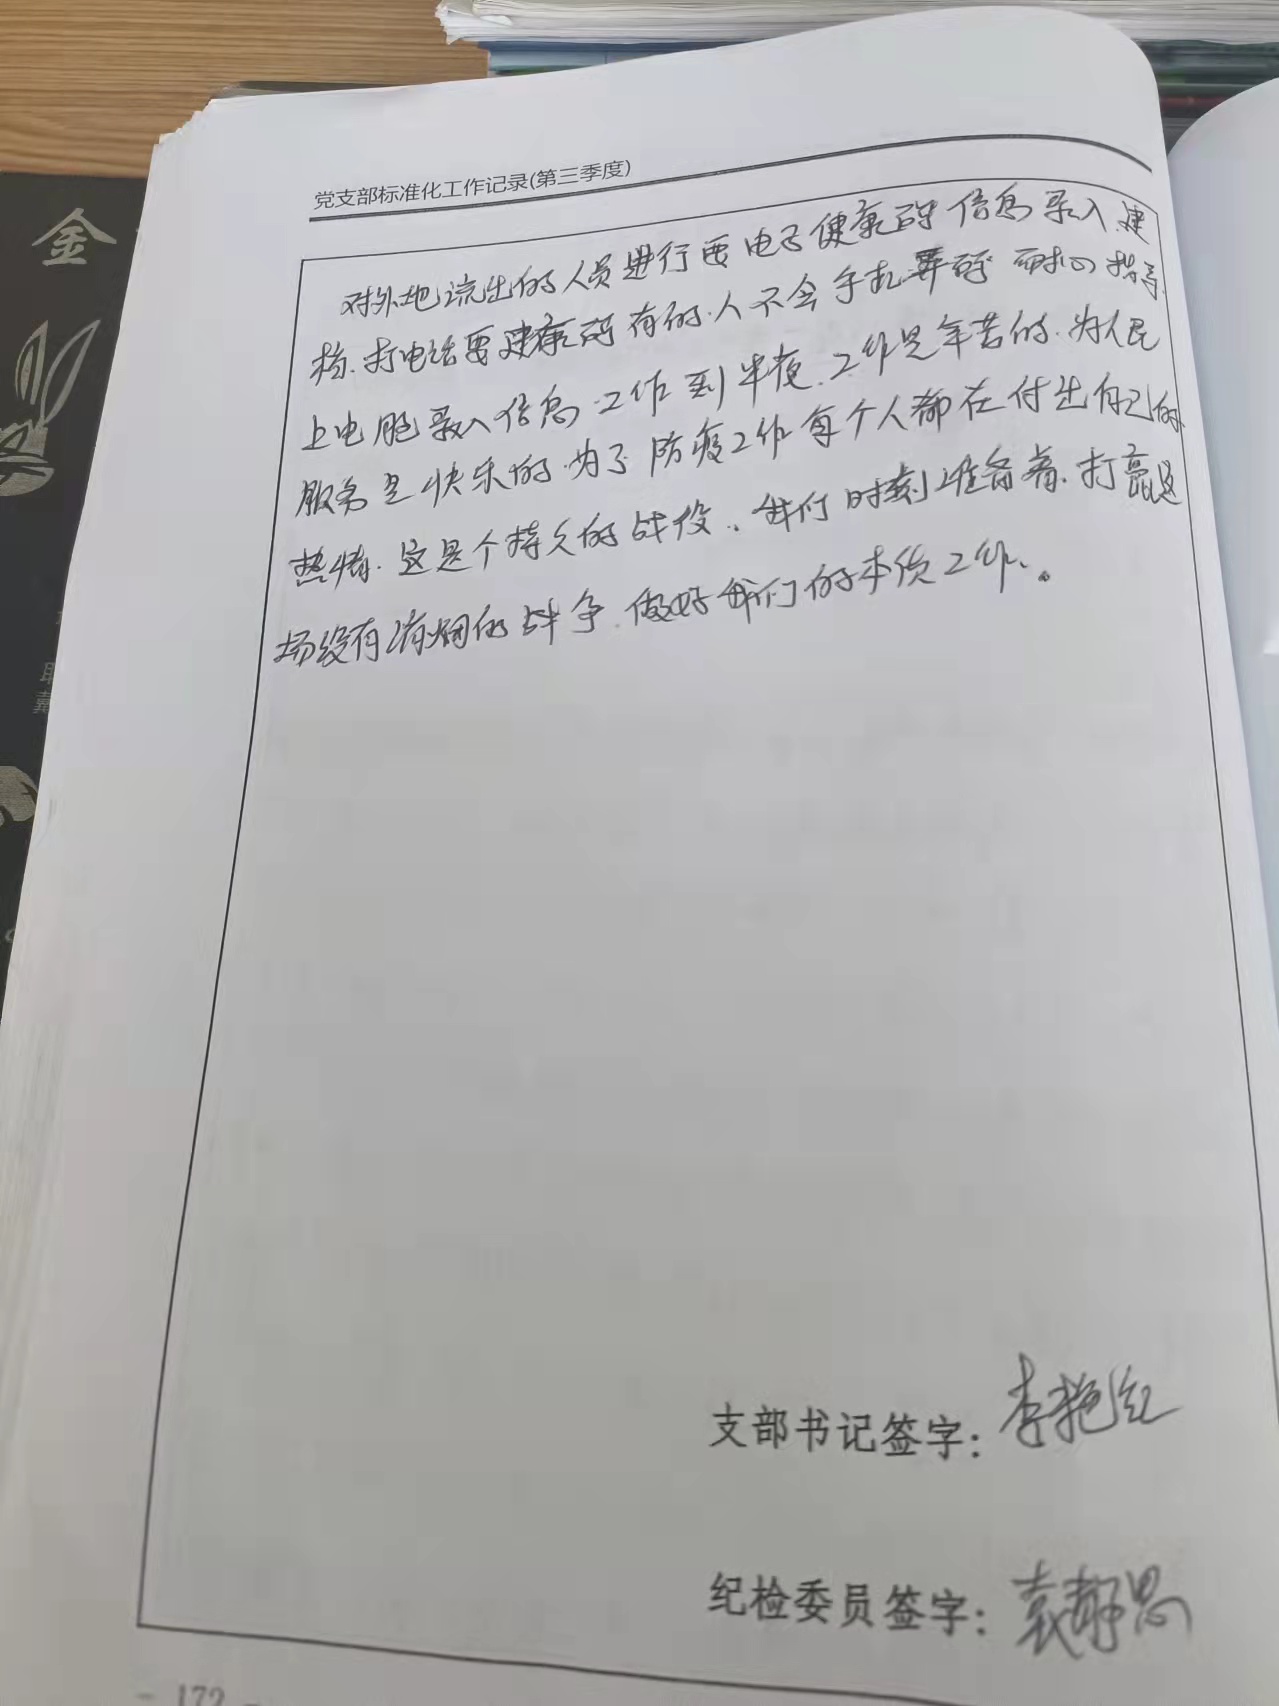 党支部标准化工作记录(第三季度)
对外地流出的人员进行要电子健康码信息录入,建
档.打电话要健康码有的.人不会手机弄码 耐心指导.
上电脑录入信息.工作到半夜.工作是辛苦的.为人民
服务是快乐的.为了防疫工作每个人都在付出自己的
热情.这是个持久的战役.我们时刻准备着.打赢这
场没有消烟的战争.做好我们的本质工作.。
支部书记签字：李艳红
纪检委员签字：袁静思
- 172 -
金